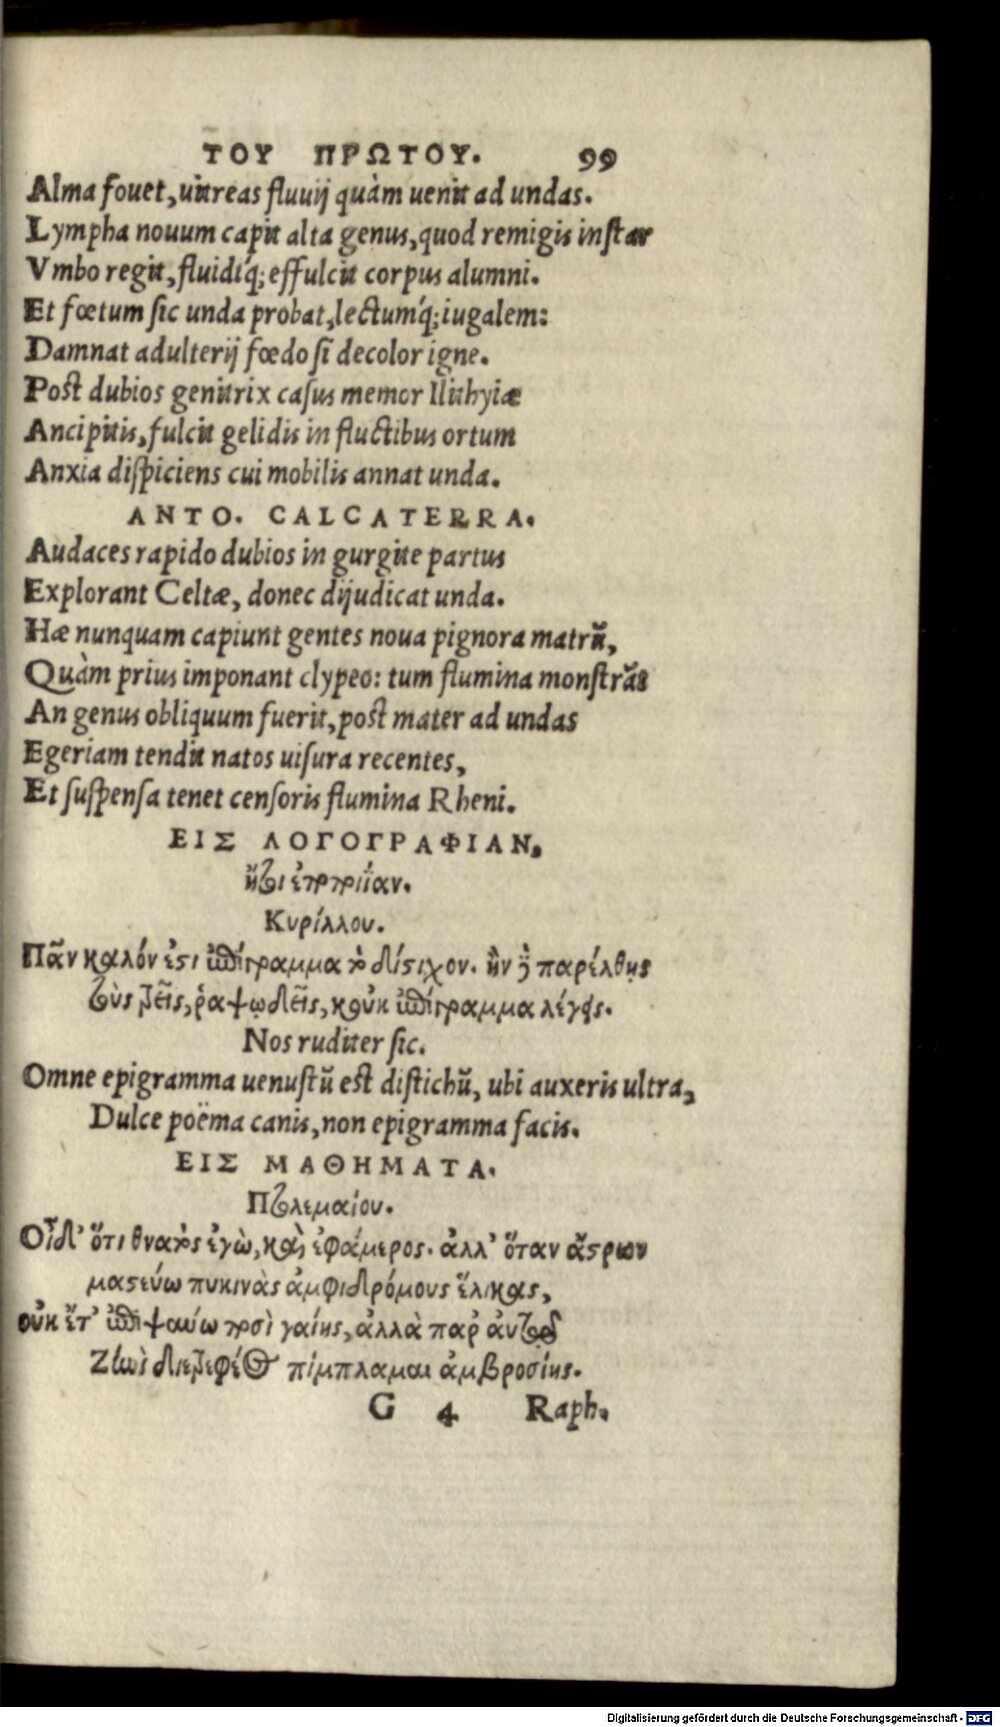 ΤΟΥ ΠΡΩΤΟΥ. 99
Alma fouet, uitreas fluuij quàm uenit ad undas.
Lympha nouum capit alta genus, quod remigis instar
Vmbo regit, fluidíq; effulcit corpus alumni.
Et fœtum sic unda probat, lectumq́; iugalem:
Damnat adulterij fœdo si decolor igne.
Post dubios genitrix casus memor Ilithyiæ
Ancipitis, fulcit gelidis in fluctibus ortum
Anxia dispiciens cui mobilis annat unda.
ANTO. CALCATERRA.
Audaces rapido dubios in gurgite partus
Explorant Celtæ, donec dijudicat unda.
Hæ nunquam capiunt gentes noua pignora matrũ,
Quàm prius imponant clypeo: tum flumina monstrãt
An genus obliquum fuerit, post mater ad undas
Egeriam tendit natos uisura recentes,
Et suspensa tenet censoris flumina Rheni.
ΕΙΣ ΛΟΓΟΓΡΑΦΙΑΝ,
Κυρίλλου.
Πᾶν καλόν ἐστι ἐπίγραμμα τὸ δίστιχον. ἢν δὲ παρέλθῃς
τοὺς τρεῖς, ῥαψῳδεῖς, κοὐκ ἐπίγραμμα λέγεις.
Nos ruditer sic.
Omne epigramma uenustũ est distichũ, ubi auxeris ultra,
Dulce poëma canis, non epigramma facis.
ΕΙΣ ΜΑΘΗΜΑΤΑ.
Πτολεμαίου.
Οἶδ' ὅτι θνατὸς ἐγὼ, καὶ ἐφάμερος. ἀλλ' ὅταν ἄστρων
μαστεύω πυκινὰς ἀμφιδρόμους ἕλικας,
οὐκ ἔτ' ἐπιψαύω ποσὶ γαίης, ἀλλὰ παρ' αὐτῷ
Ζηνὶ διοτρεφέος πίμπλαμαι ἀμβροσίης.
G 4 Raph.
Digitalisierung gefördert durch die Deutsche Forschungsgemeinschaft - DFG